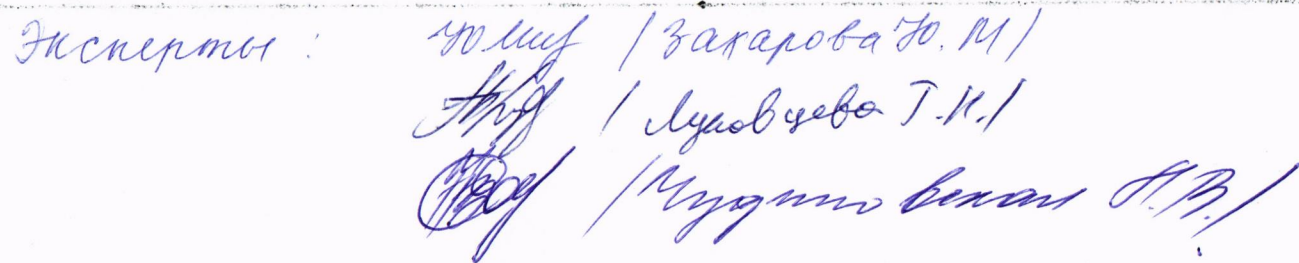 Эксперты : /Захарова Ю.М/
/ Луковцева Т.Н./
/Чудиновская Н.В./